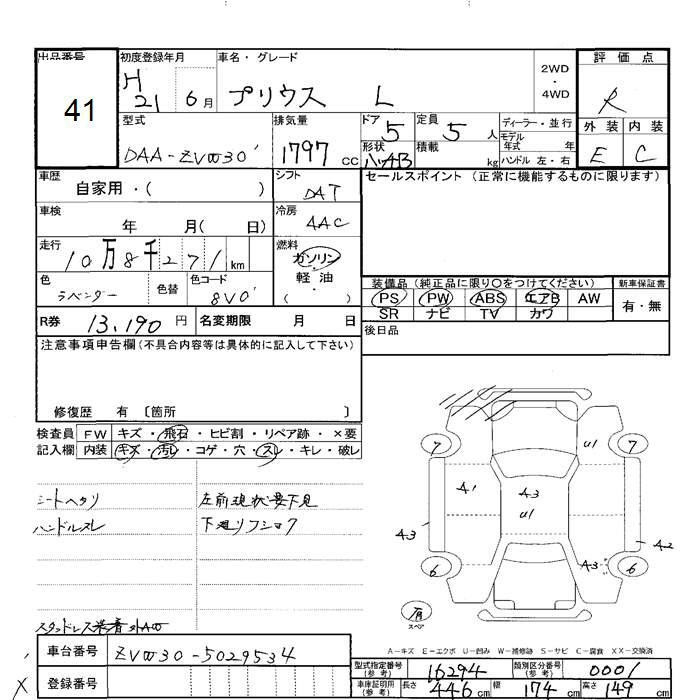 出品番号 初度登録年月 車名・グレード 評価点
41
H21 6月 プリウス L
2WD・4WD
R
型式 排気量 ドア 定員 ディーラー・並行 外装 内装
DAA-ZVW30 1797cc 5 5人 モデル年式 年 E C
形状 積載 kg ハンドル 左・右
車歴 自家用・( ) シフト DAT セールスポイント (正常に機能するものに限ります)
車検 年 月( 日) 冷房 AAC
走行 10万8千271km 燃料 ガソリン・軽油・( )
色 ラベンダー 色替 色コード 8V0
装備品 (純正品に限り○をつけてください) 新車保証書
PS PW ABS エアB AW 有・無
SR ナビ TV カワ
R券 13,190円 名変期限 月 日 後日品
注意事項申告欄 (不具合内容等は具体的に記入して下さい)
修復歴 有 〔箇所 〕
検査員記入欄 FW キズ・飛石・ヒビ割・リペア跡・×要
内装 キズ・汚レ・コゲ・穴・スレ・キレ・破レ
シートヘタリ 左前現状要下見
ハンドルスレ 下廻リフシヨク
7 U1 7
A1 A3 U1
A3 A2
6 A3 6
有 スペア
A-キズ E-エクボ U-凹み W-補修跡 S-サビ C-腐食 XX-交換済
車台番号 ZVW30-5029534
登録番号
型式指定番号(参考) 16294 類別区分番号(参考) 0001
車庫証明用(参考) 長さ 446cm 幅 174cm 高さ 149cm